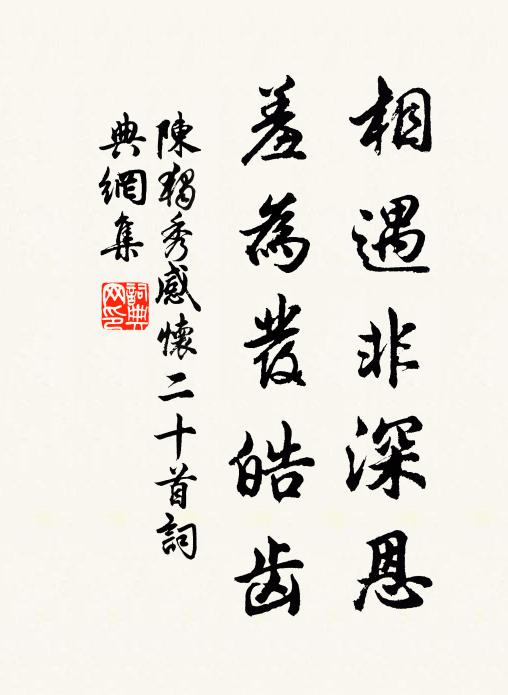 相遇非深恩
羞為發皓齿
陳獨秀感懷二十首詞
典網集
詞典網印